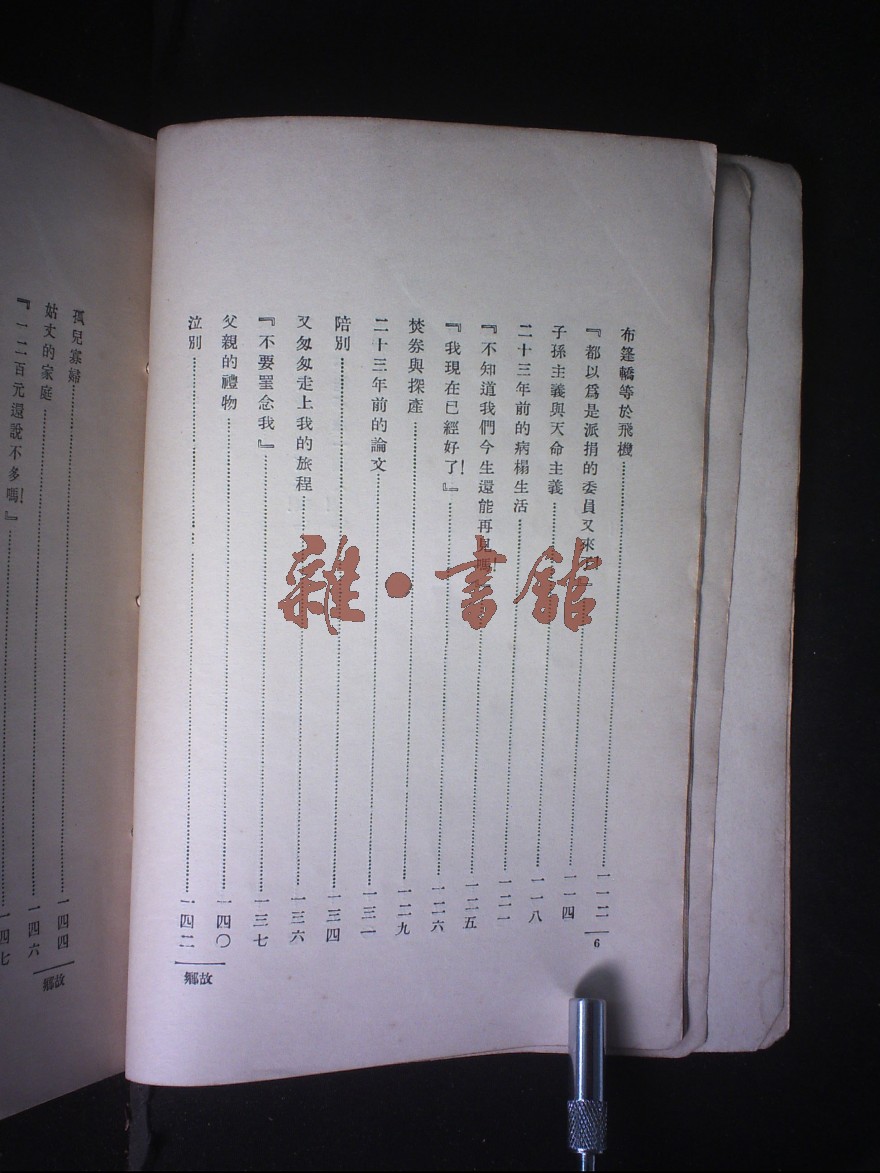 布篷轎等於飛機……………………一一二
『都以爲是派捐的委員又來……………………一一四
子孫主義與天命主義……………………一一八
二十三年前的病榻生活……………………一二一
『不知道我們今生還能再見嗎……………………一二五
『我現在已經好了!』……………………一二六
焚券與探產……………………一二九
二十三年前的論文……………………一三一
陪別……………………一三四
又匆匆走上我的旅程……………………一三六
『不要罣念我』……………………一三七
父親的禮物……………………一四〇
泣別……………………一四二
6
故鄉
雜·書館
孤兒寡婦……………………一四四
姑丈的家庭……………………一四六
『一二百元還說不多嗎!』……………………一四七
故鄉